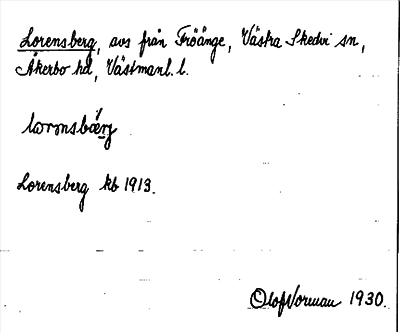 Lorensberg, avs från Fröånge, Västra Skedvi sn,
Åkerbo hd, Västmanl. l.
Lorensberg kb 1913.
Olof Norman 1930.